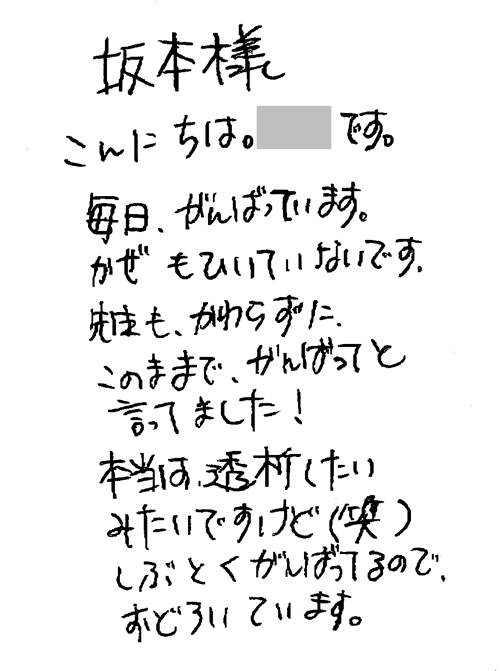 坂本様
こんにちは。です。
毎日、がんばっています。
かぜもひいていないです。
先生も、かわらずに、
このままで、がんばってと
言ってました！
本当は、透析したい
みたいですけど（笑）
しぶとくがんばってるので、
おどろいています。